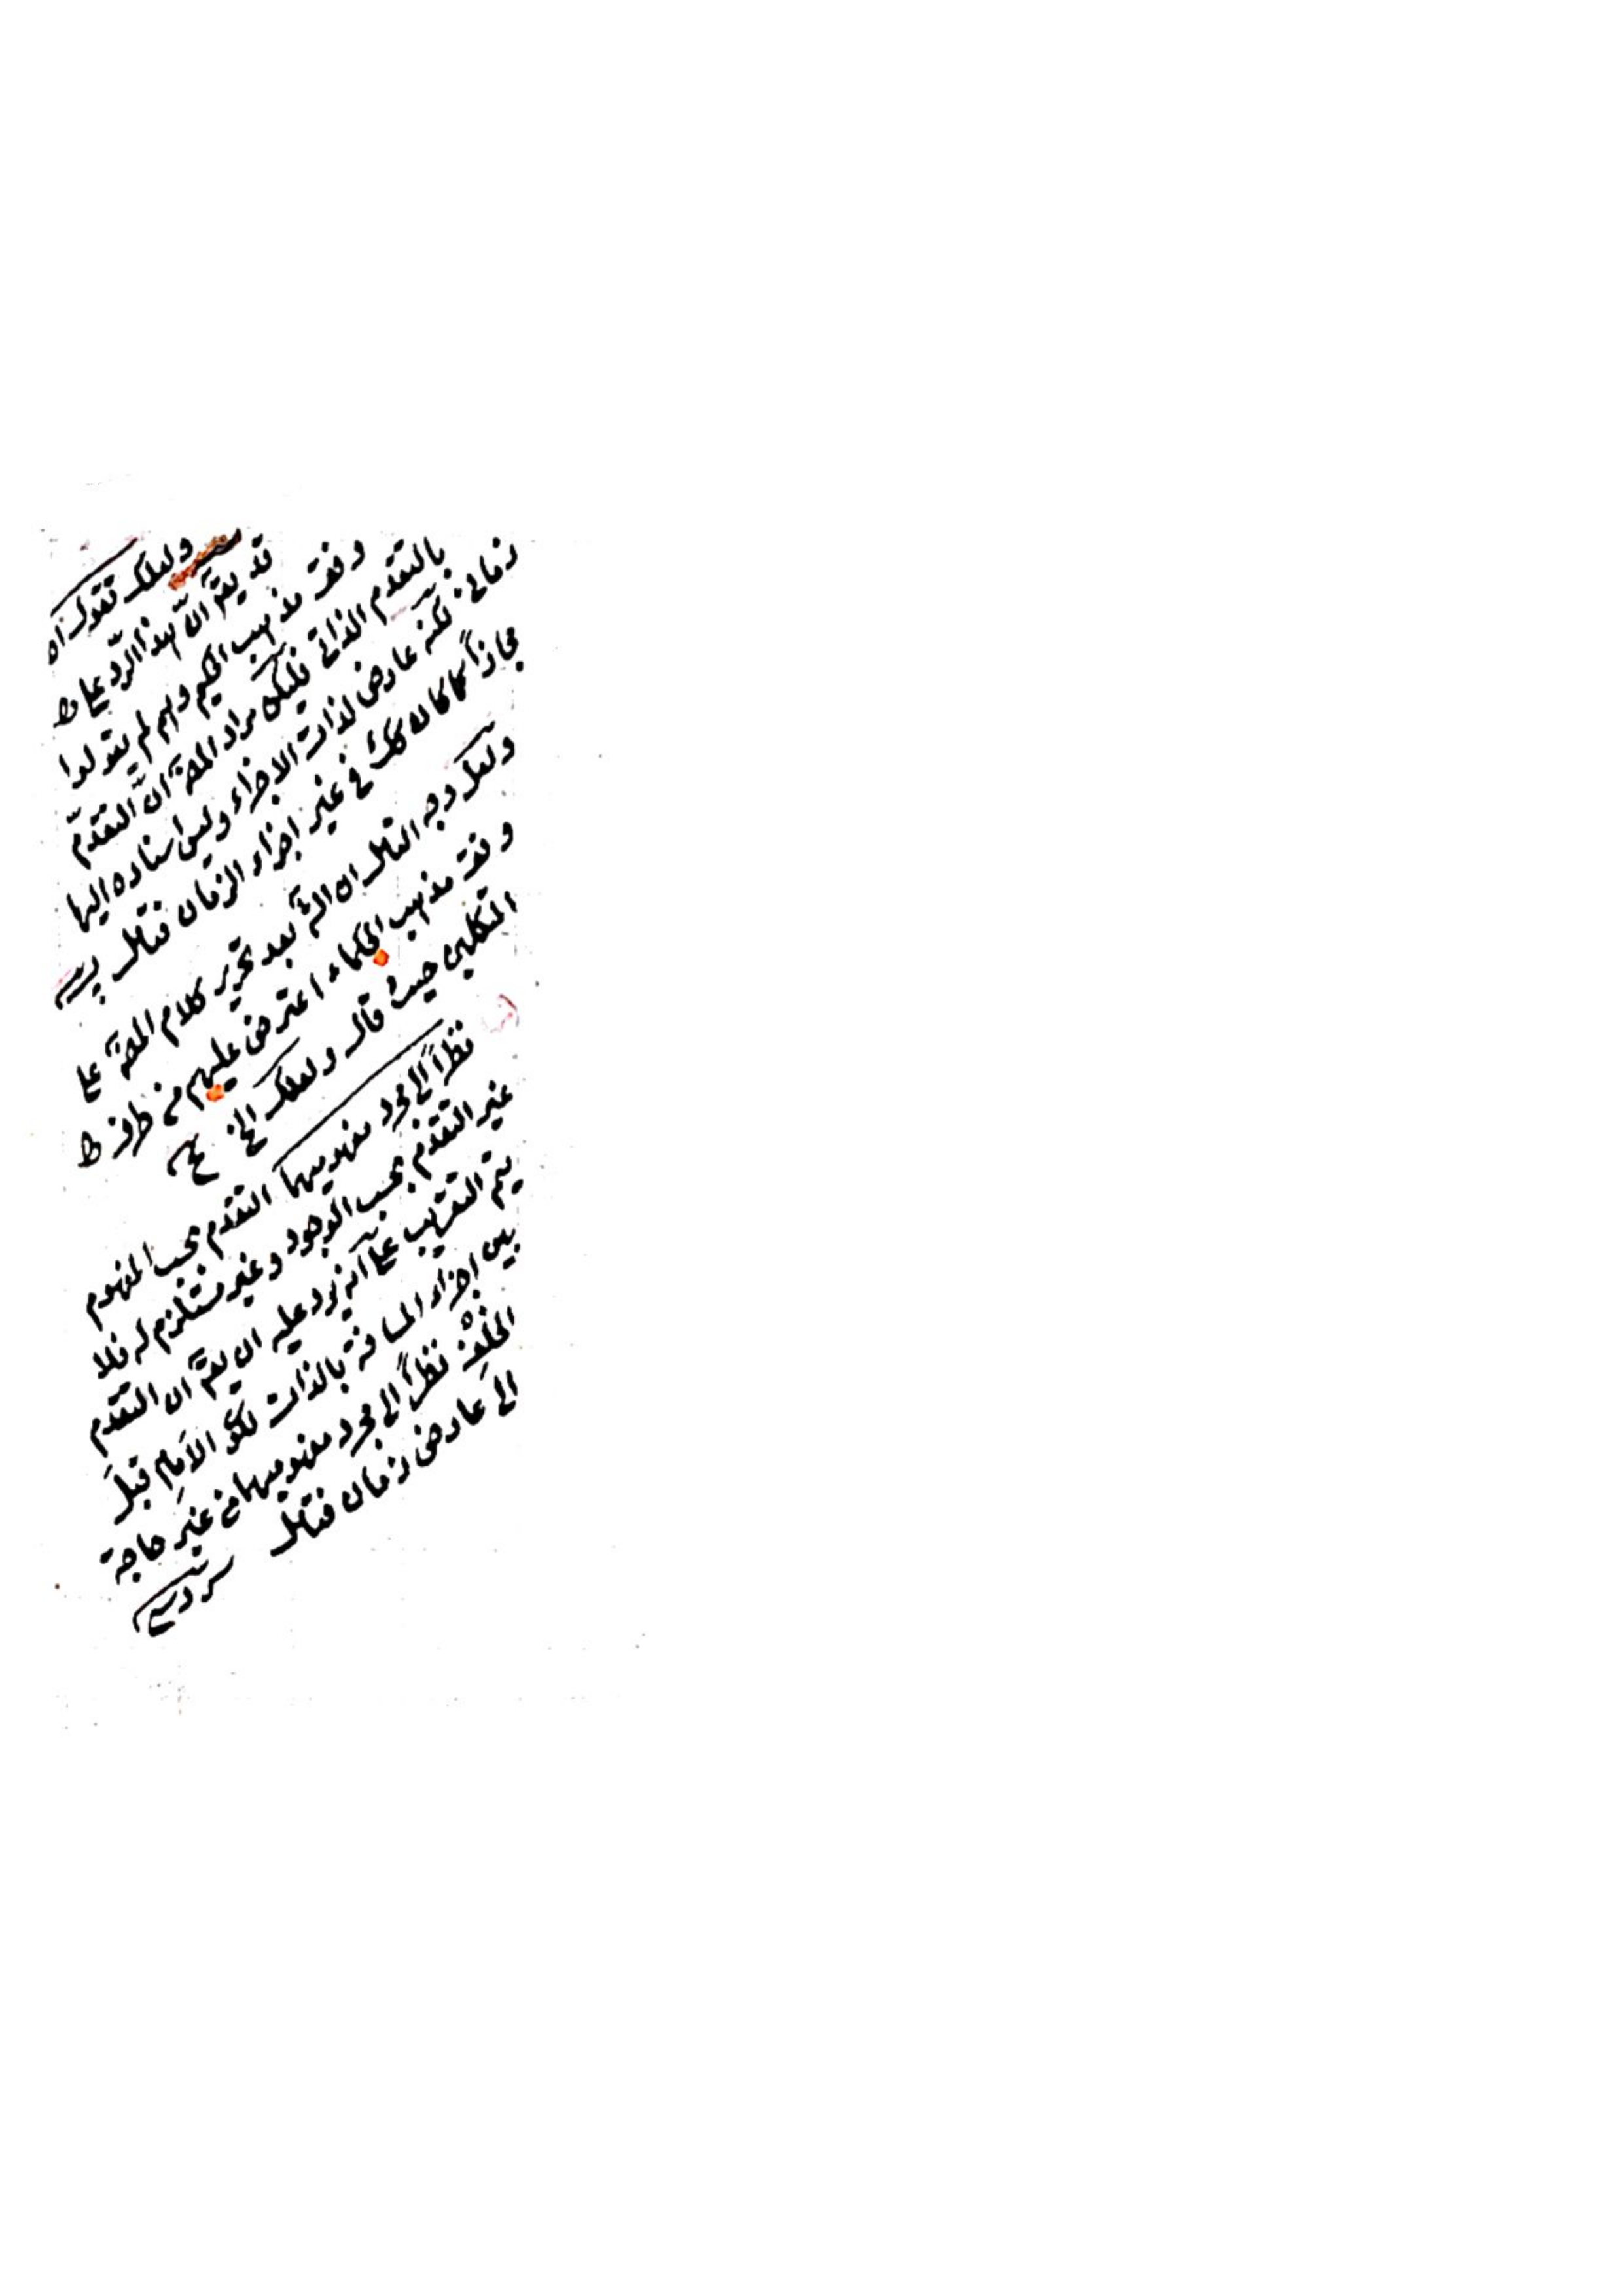 ولعلك تقول اه
قد يقال ان هذا الرد على
وفق مذهب الحكيم وهم لم يقولوا
بالتقدم الذاتي فليكن مراد المصـ ان التقدم
زماني لكنه عارض لذات الاجزاء وليس اسناده اليها
مجازاً كما كان كذلك في غير اجزاء الزمان فتأمل
ولعل وجه التأمل ان الشـ بعد تحرير كلام المصـ على
وفق مذهب الحكماء اعترض عليهم من طرف
المتكلمين حيث قال ولعلك الخ
نظراً الى مجرد مفهومهما التقدم بحسب المفهوم
غير التقدم بحسب الوجود وغير مستلزم له فلا
يتم التقريب على انه يرد عليه ان يقـ ان التقدم
بين اجزاء المسافة بالذات نحو الامام قبل
الخلف نظراً الى مجرد مفهومهما من غير حاجة
الى عارض زمان فتأمل